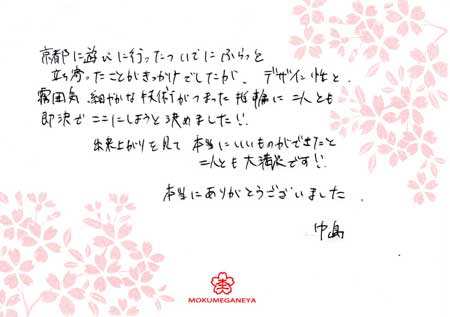 京都に遊びに行ったついでにふらっと
立ち寄ったことがきっかけでしたが、デザイン性と、
雰囲気、細やかな技術がつまった指輪に二人とも
即決でここにしようと決めました!!
出来上がりを見て本当にいいものができたと
二人とも大満足です!!
本当にありがとうございました
中島
杢
MOKUMEGANEYA